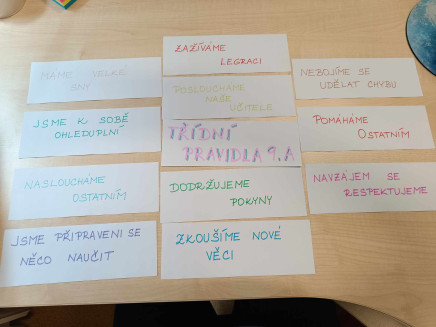 MÁME VELKÉ
SNY
JSME K SOBĚ
OHLEDUPLNÍ
NASLOUCHÁME
OSTATNÍM
JSME PŘIPRAVENI SE
NĚCO NAUČIT
ZAŽÍVÁME
LEGRACI
POSLOUCHÁME
NAŠE
UČITELE
TŘÍDNÍ
PRAVIDLA 9.A
DODRŽUJEME
POKYNY
ZKOUŠÍME NOVÉ
VĚCI
NEBOJÍME SE
UDĚLAT CHYBU
POMÁHÁME
OSTATNÍM
NAVZÁJEM SE
RESPEKTUJEME